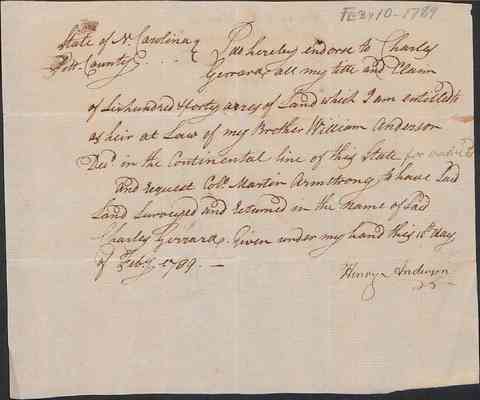 Feby 10-1789
State of No. Carolina
Pitt County
I do hereby endorse to Charles
Gerrard all my title and Claim
of Six hundred & forty acres of Land which I am entitled to
as heir at Law of my Brother William Anderson
Decd. in the Continental line of this State for
and request Coll. Martin Armstrong to have Said
Land Surveyed and returned in the name of Said
Charles Gerrard. Given under my hand this 10th day
of Feby. 1789. —
Henry Anderson